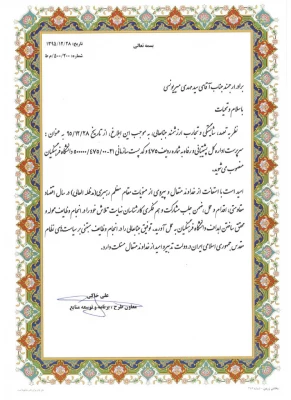 بسمه تعالی
تاریخ: ۱۳۹۵/۱۲/۲۸
شماره: ۵۰۰/۲۰۰/م ط
برادر ارجمند جناب آقای سید مهدی میریونسی
با سلام و تحیات
نظر به تعهد، شایستگی و تجارب ارزشمند جنابعالی، به موجب این ابلاغ، از تاریخ ۹۵/۱۲/۲۸ به عنوان :
سرپرست اداره کل پشتیبانی و رفاه به شماره ردیف ۴۷۵ و کد پست سازمانی ۵۰۰۰۰۰/۴۷۵/۰۰۲۱ دانشگاه فرهنگیان
منصوب می شوید.
امید است با استعانت از خداوند متعال و پیروی از منویات مقام معظم رهبری (مدظله العالی) در سال اقتصاد
مقاومتی، اقدام و عمل، ضمن جلب مشارکت و همفکری کارشناسان نهایت تلاش خود را در انجام وظایف محوله و
محقق ساختن اهداف دانشگاه فرهنگیان به عمل آورید. توفیق جنابعالی را در انجام وظایف مبتنی بر سیاست های نظام
مقدس جمهوری اسلامی ایران و دولت تدبیر و امید از خداوند متعال مسئلت دارد.
علی خاکی
معاون طرح ، برنامه و توسعه منابع